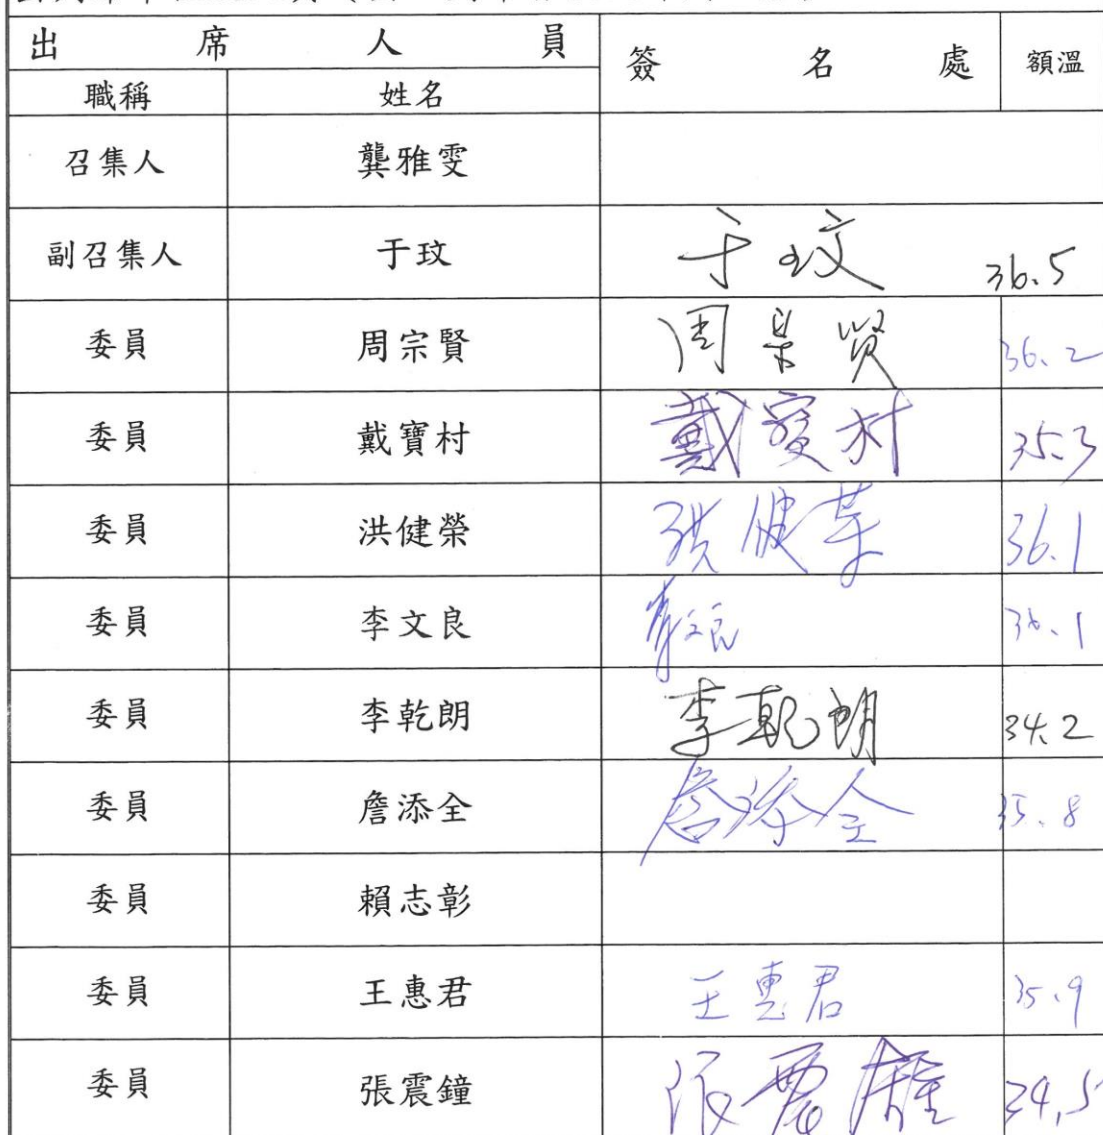 出席人員 簽名處 額溫
職稱 姓名
召集人 龔雅雯
副召集人 于玟 于玟 36.5
委員 周宗賢 周宗賢 36.2
委員 戴寶村 戴寶村 35.3
委員 洪健榮 洪健榮 36.1
委員 李文良 李文良 36.1
委員 李乾朗 李乾朗 34.2
委員 詹添全 詹添全 35.8
委員 賴志彰
委員 王惠君 王惠君 35.9
委員 張震鐘 張震鐘 34.5